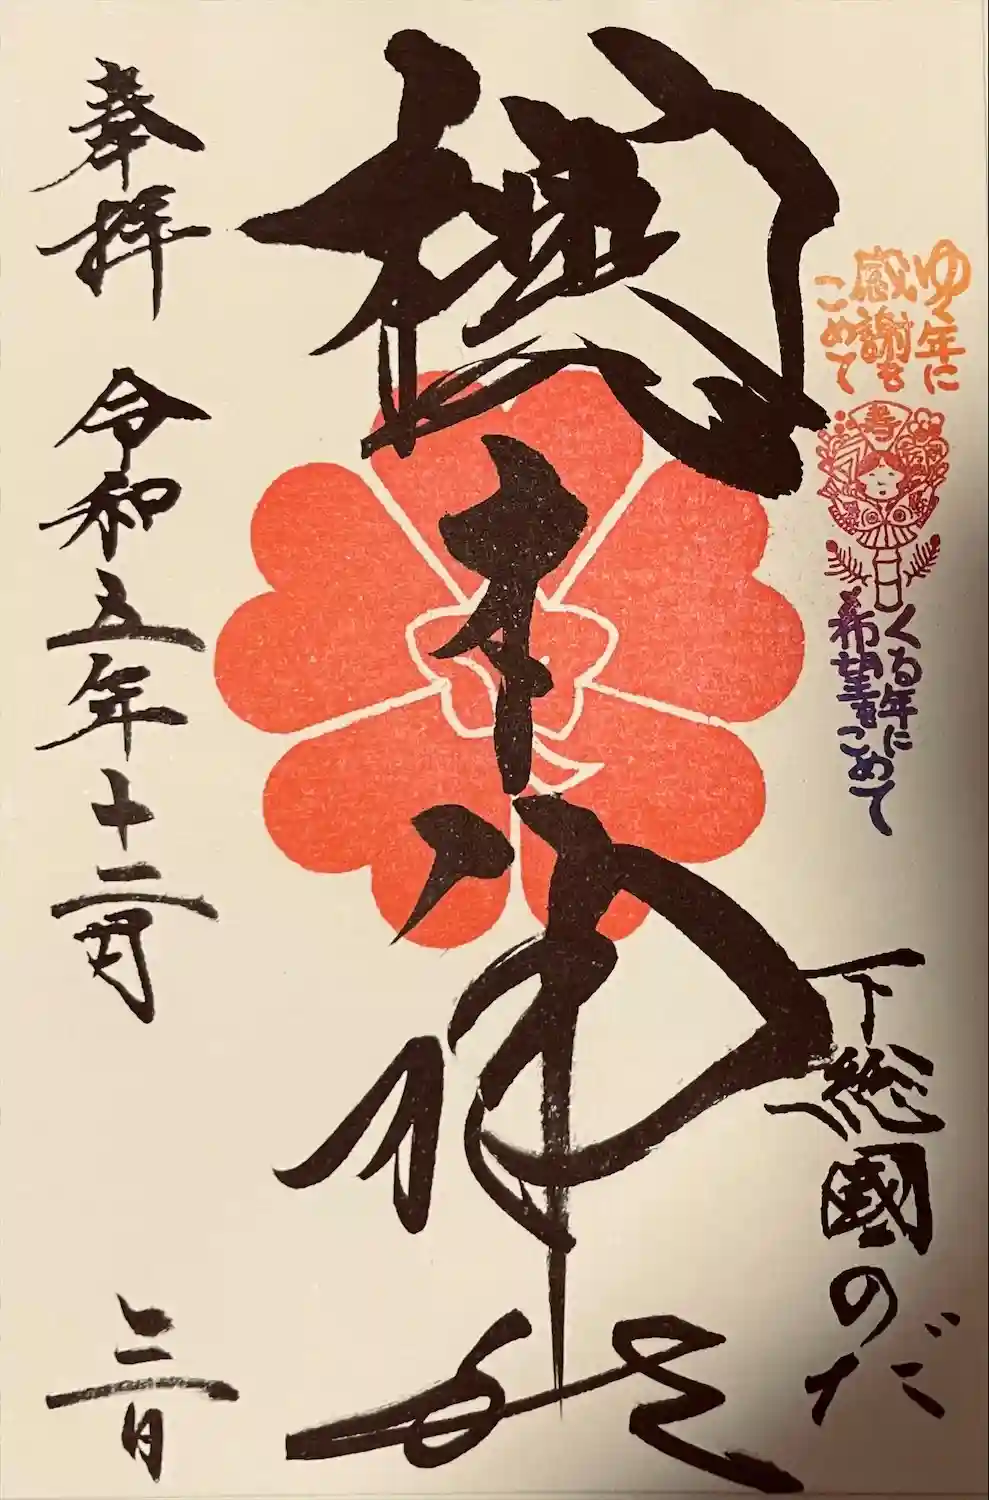 ゆく年に
感謝を
こめて
寿
くる年に
希望をこめて
下総國のだ
櫻木神社
奉拝 令和五年十二月 三日